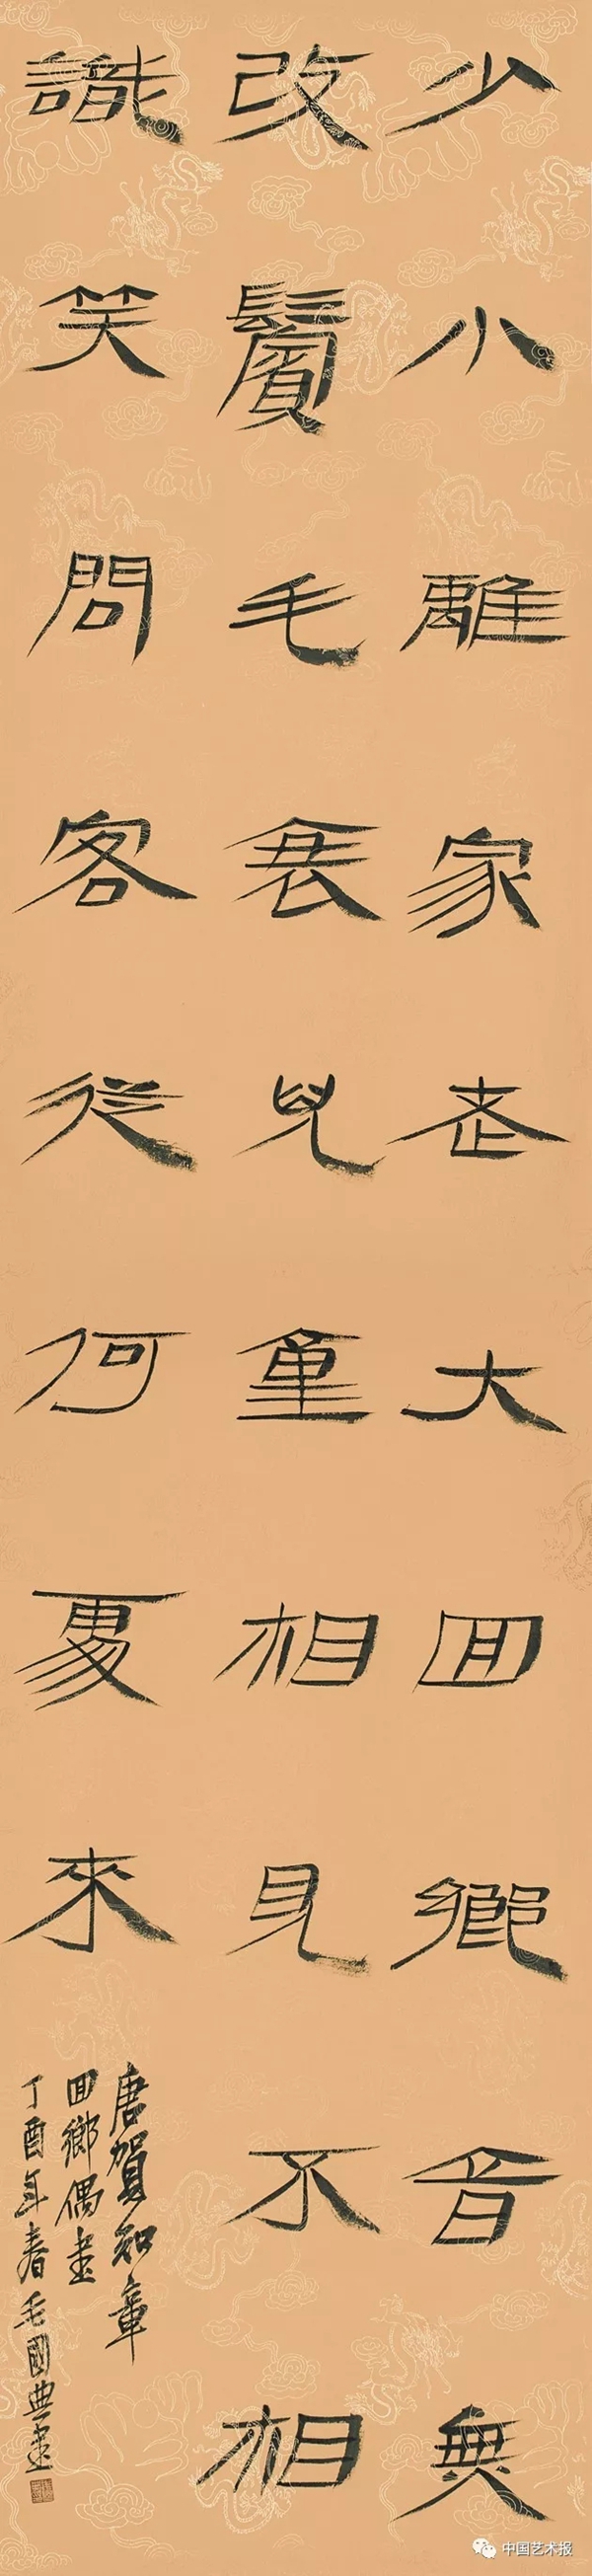 少小離家老大回鄉音無
改鬢毛衰兒童相見不相
識笑問客從何處來
唐賀知章
回鄉偶書
丁酉年春毛國典書
中国艺术报